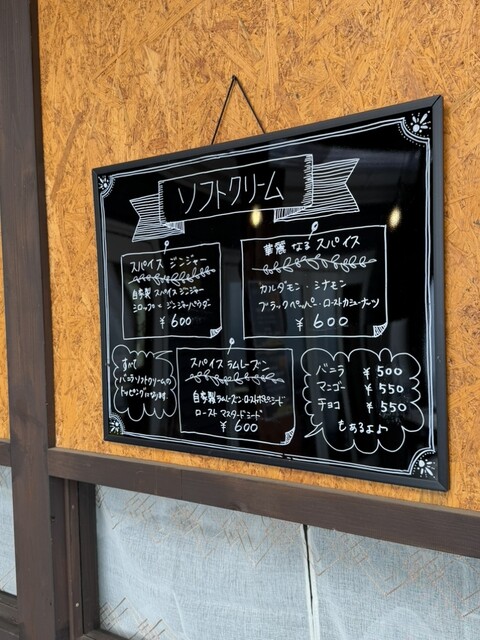 ソフトクリーム
スパイス ジンジャー
自家製 スパイス ジンジャー
シロップ & ジンジャーパウダー
¥600
華麗なるスパイス
カルダモン・シナモン
ブラックペッパー・ローストカシューナッツ
¥600
スパイス ラムレーズン
自家製ラムレーズン・ローストポピーシード
ロースト マスタードシード
¥600
すべて
バニラソフトクリームの
トッピングになります
バニラ ¥500
マンゴー ¥550
チョコ ¥550
もあるよ♪